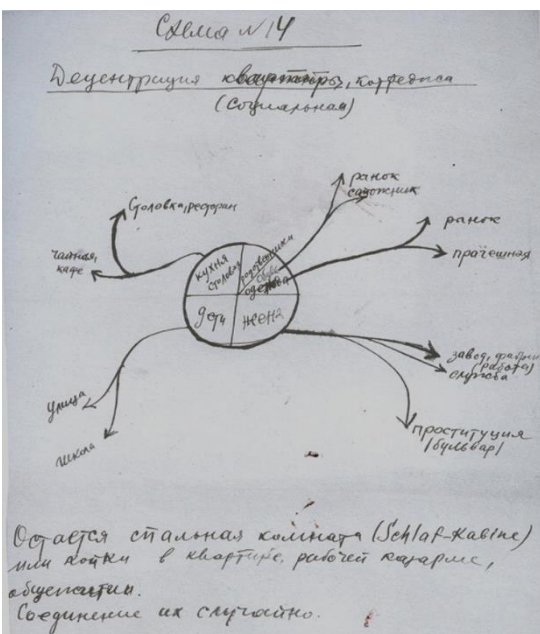 Схема №14
Децентрация квартиры, коттеджа
(Социальная)
Столовка, ресторан
чайная,
кафе
ранок
сапожник
ранок
прачешная
кухня
столовая
одежда
дети
жена
завод, фабри
(работа)
служба
проституция
(бульвар)
улица
школа
Остается спальная комната (Schlaf-Kabine)
или койки в квартире, рабочей казарме,
общежитии.
Соединение их случайно.